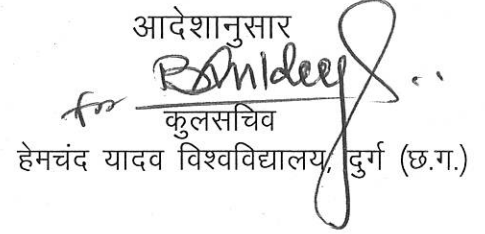 आदेशानुसार
for
कुलसचिव
हेमचंद यादव विश्वविद्यालय, दुर्ग (छ.ग.)